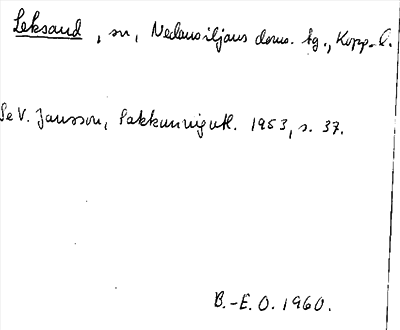 Leksand, sn, Nedansiljans doms. tg., Kopp. l.
Se V. Jansson, Sakkunnigutl. 1953, s. 37.
B.-E. O. 1960.